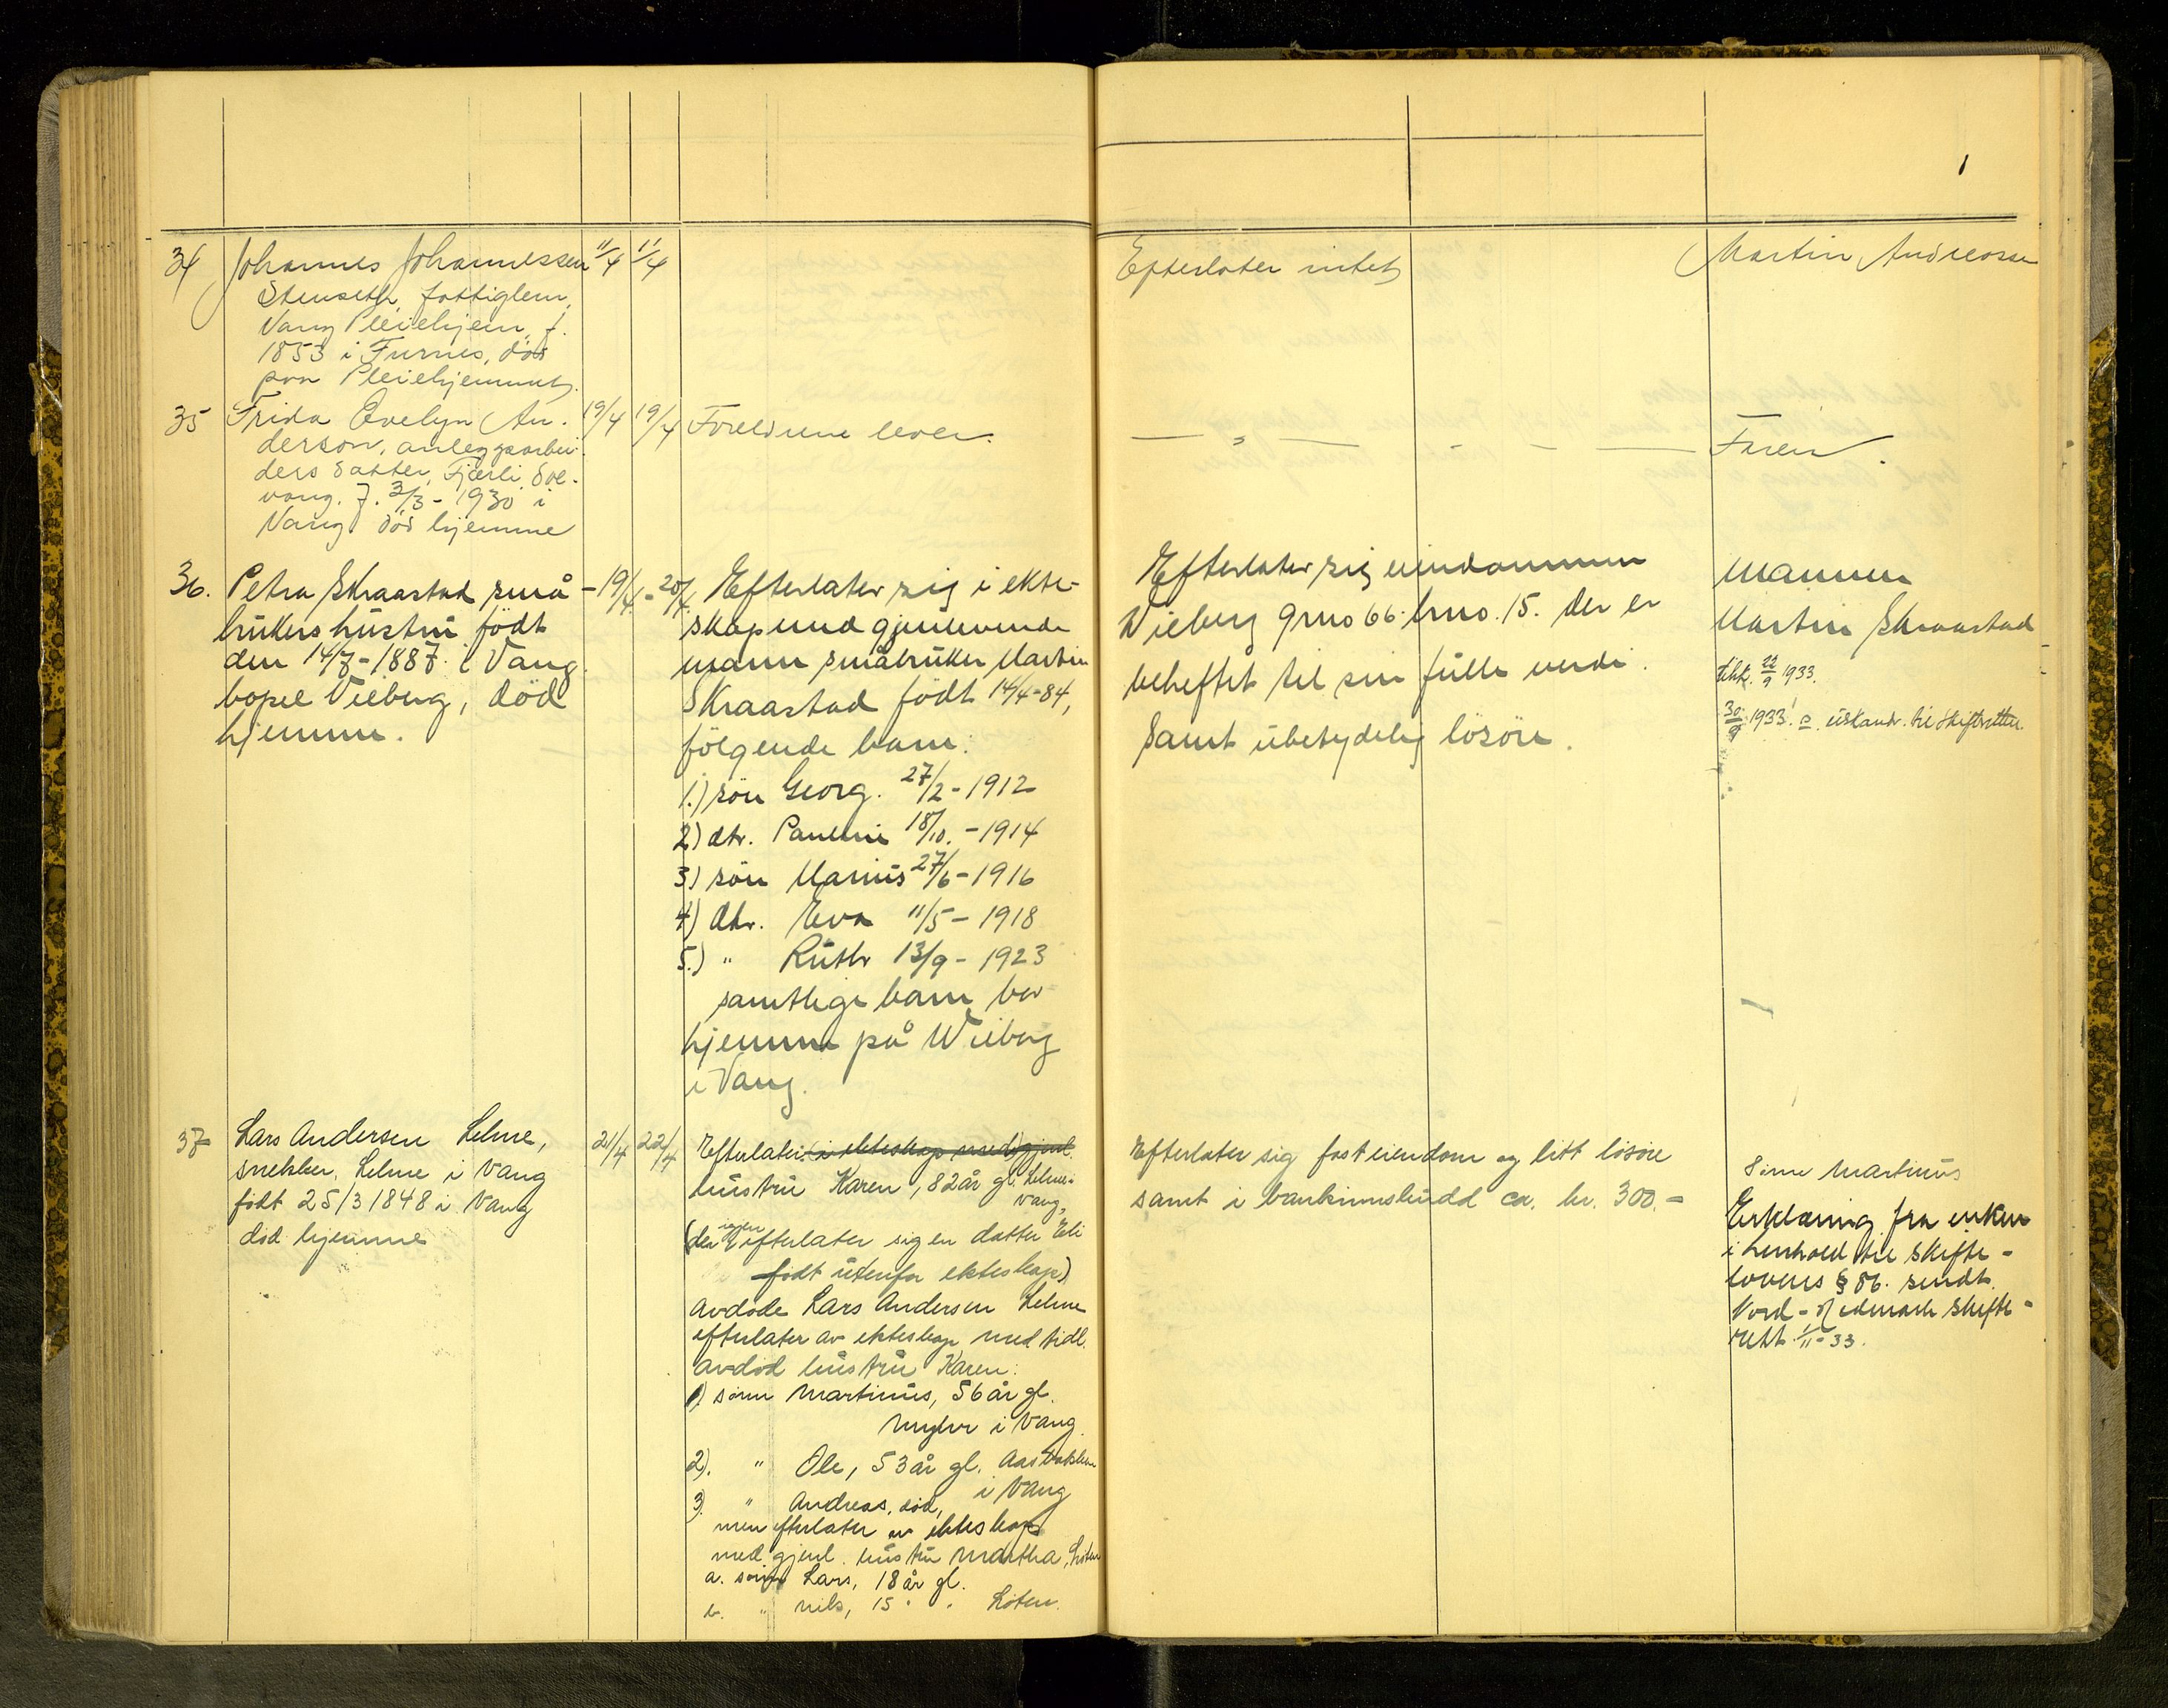 34
Johannes Johannessen
Stenseth, fattiglem,
Vang Pleiehjem, f.
1853 i Furnes, död
paa Pleiehjemmet.
11/4
11/4
Efterlater intet
Martin Andreasse
35
Frida Evelyn An-
derson, anleggsarbei-
ders datter, Fjærli Sol-
vang. f. 3/3 - 1930 i
Vang död hjemme
19/4
19/4
Foreldrene lever.
— " — - - —
Faren.
36.
Petra Skraastad små-
brukers hustru födt
den 14/7 - 1887 i Vang
bopel Vieberg, död
hjemme.
- 19/4
- 20/4.
Efterlater sig i ekte-
skap med gjenlevende
mann småbruker Martin
Skraastad födt 14/4-84,
fölgende barn:
1.) sön Georg. 27/2 - 1912
2) dtr. Pauline 18/10. - 1914
3) sön Marius 27/6 - 1916
4) dtr. Eva 11/5 - 1918
5.) " Ruth 13/9 - 1923
samtlige barn bor
hjemme på Wieberg
i Vang.
Efterlater sig eiendommen
Wieberg gno 66 bno. 15. der er
beheftet til sin fulle verdi.
Samt ubetydelig lösöre.
Mannen
Martin Skraastad
22/9 1933.
30/9 1933. til skifteretten.
37
Lars Andersen Lelme,
snekker, Lelme i Vang
födt 25/3 1848 i Vang
död hjemme
21/4
22/4
Efterlater (i ekteskap med) gjenl.
hustru Karen, 82 år gl. Lelme i
Vang,
(der igjen efterlater sig en datter Eli
födt utenfor ekteskap)
Avdöde Lars Andersen Lelme
efterlater av ekteskap med tidl.
avdöd hustru Karen:
1) sönn Martinus, 56 år gl.
Myhr i Vang.
2). " Ole, 53 år gl. Aasbakken
i Vang
3. " Andreas, död,
men efterlater av ekteskap
med gjenl. hustru Martha, Löten
a. sönn Lars, 18 år gl.
b. " Nils, 15 " " Löten.
Efterlater sig fast eiendom og litt lösöre
samt i bankinnskudd ca. kr. 300.-
Sönn Martinus
Erklæring fra enken
i henhold til skifte-
lovens § 86. sendt
Nord-Hedmark skifte-
rett 1/11-33.